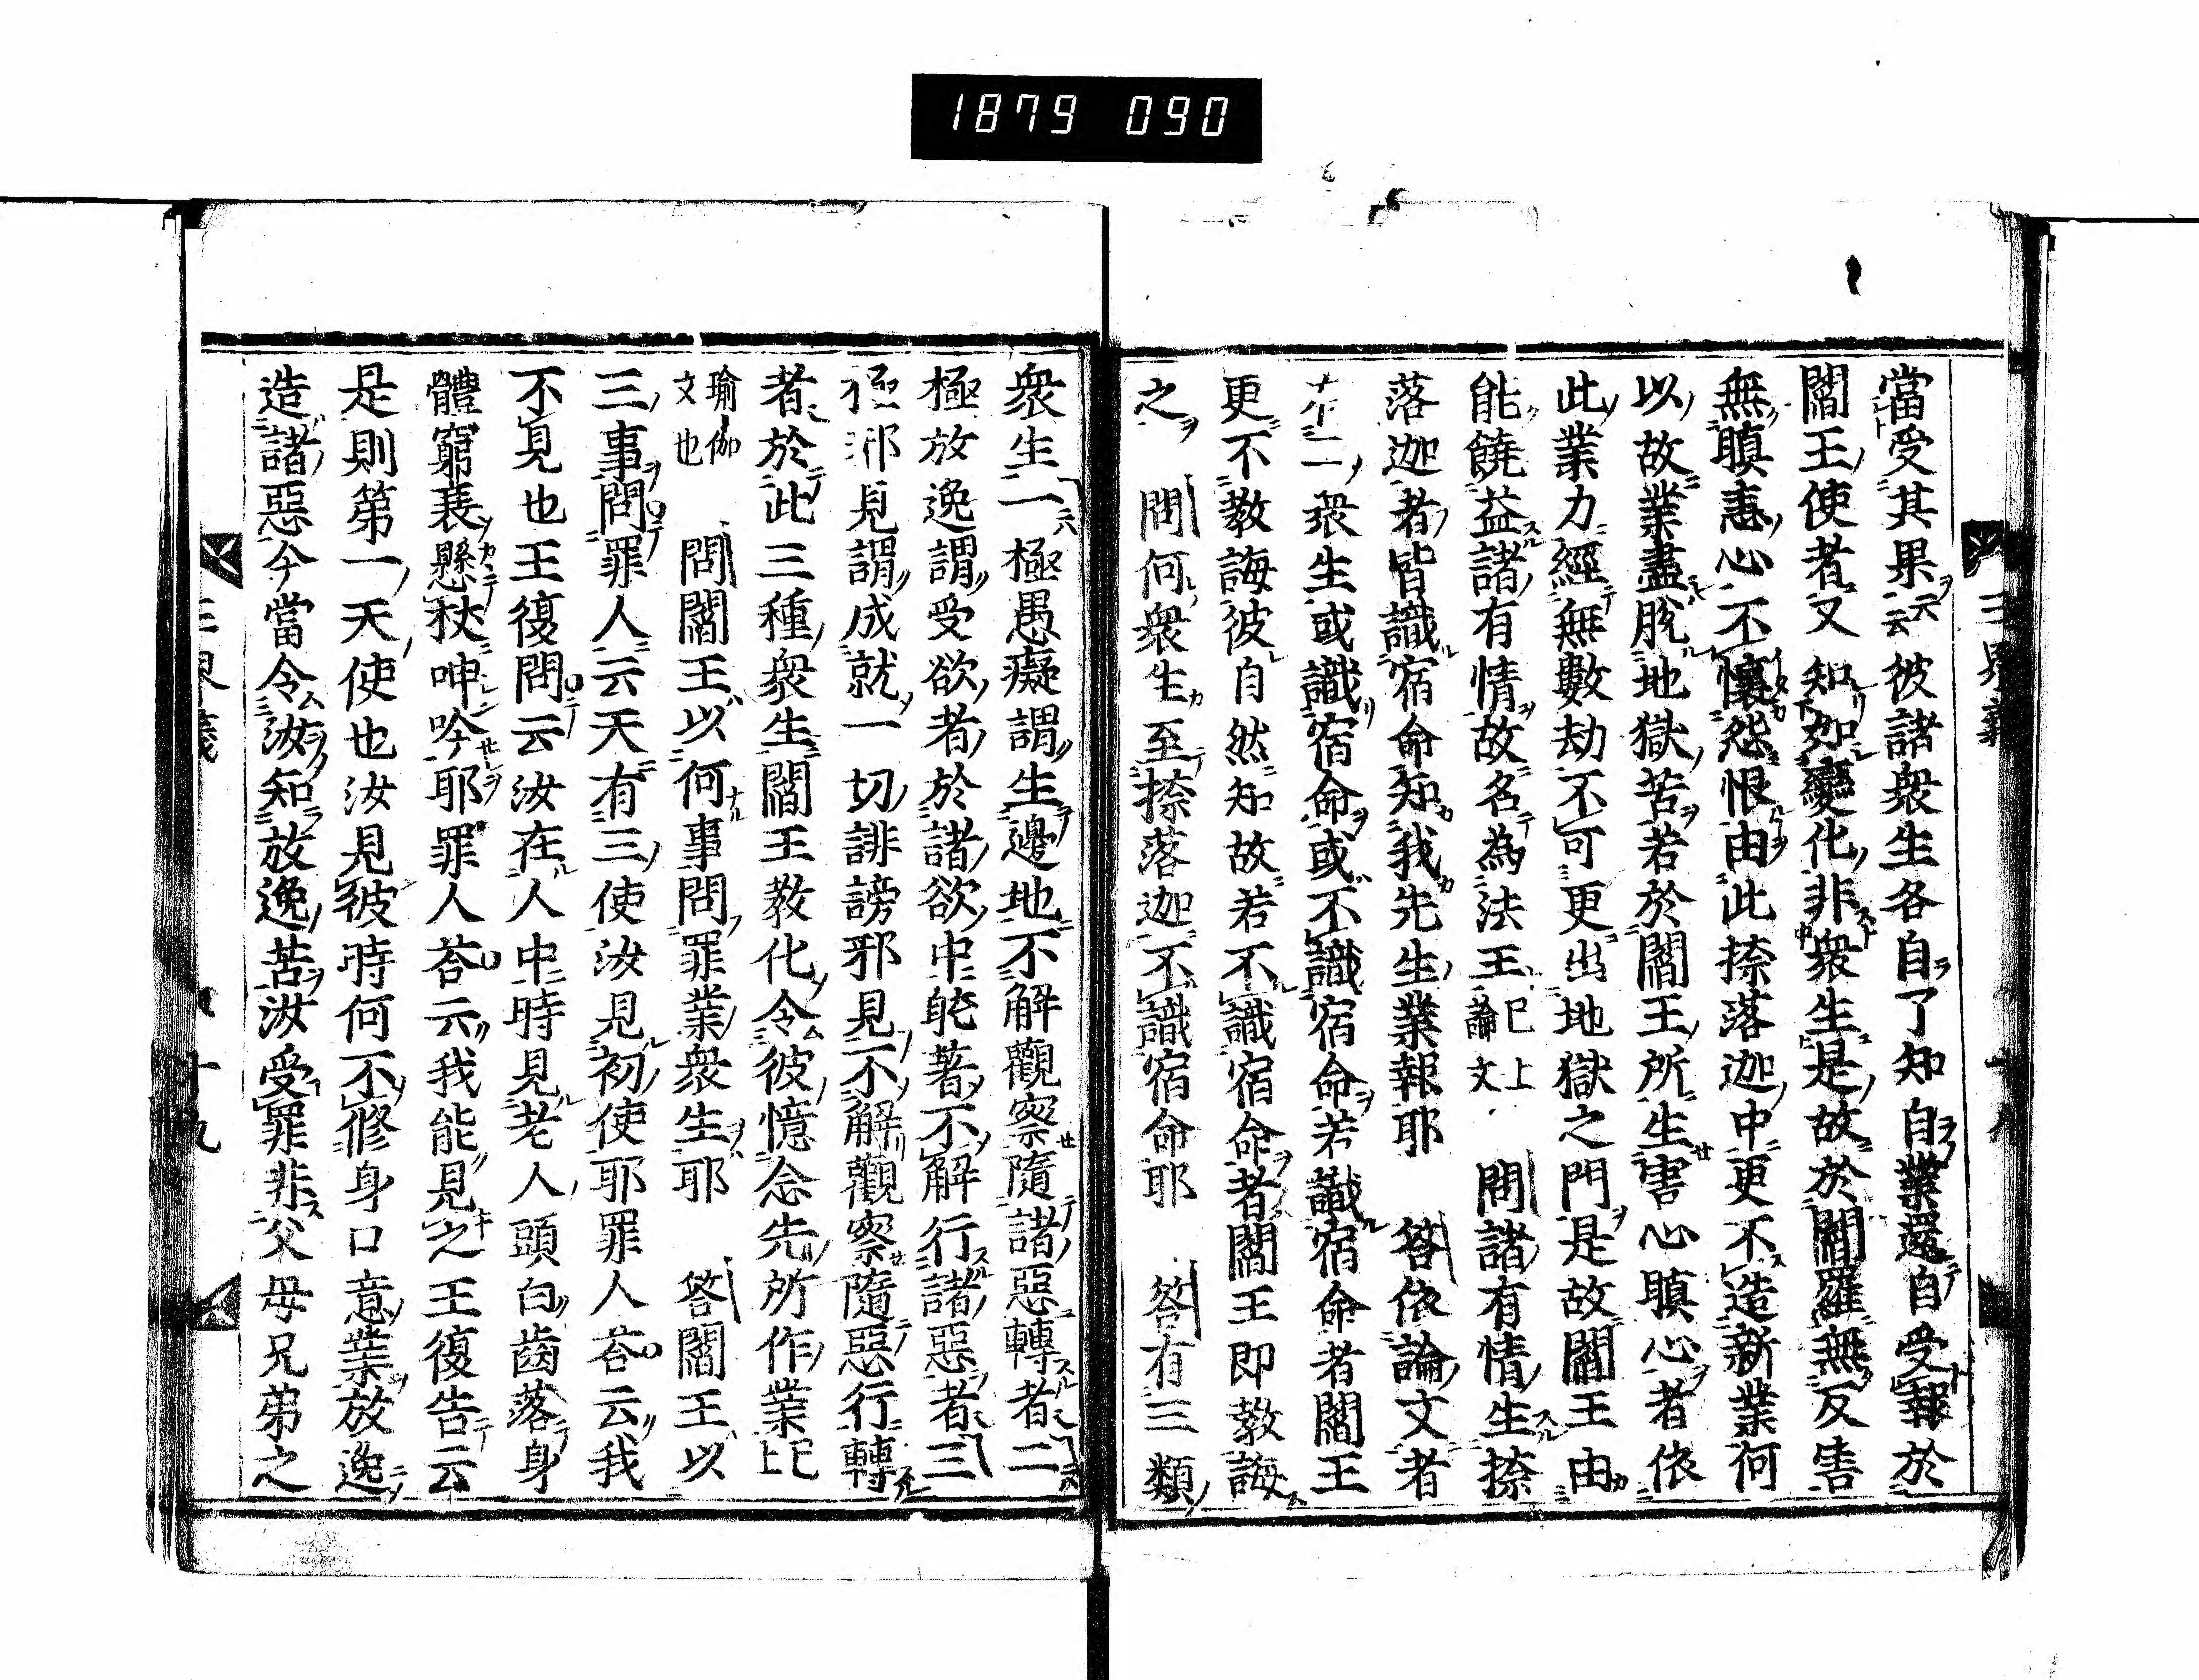 1879 090
當受其果云云彼諸衆生各自了知自業還自受報於
閻王使者又知如變化非衆生是故於閻羅無反害
無瞋恚心不懷怨恨由此捺落迦中更不造新業何
以故業盡脫地獄苦若於閻王所生害心瞋心者依
此業力經無數劫不可更出地獄之門是故閻王由
能饒益諸有情故名為法王已上論文 問諸有情生捺
落迦者皆識宿命知我先生業報耶 答依論文者
不一衆生或識宿命或不識宿命若識宿命者閻王
更不教誨彼自然知故若不識宿命者閻王即教誨
之 問何衆生至捺落迦不識宿命耶 答有三類
衆生一極愚癡謂生邊地不解觀察隨諸惡轉者二
極放逸謂受欲者於諸欲中躭著不解行諸惡者三
極邪見謂成就一切誹謗邪見不解觀察隨惡行轉
者於此三種衆生閻王教化令彼憶念先所作業已上
瑜伽文也 問閻王以何事問罪業衆生耶 答閻王以
三事問罪人云天有三使汝見初使耶罪人荅云我
不見也王復問云汝在人中時見老人頭白齒落身
體窮衰懸杖呻吟耶罪人荅云我能見之王復告云
是則第一天使也汝見彼時何不修身口意業放逸
造諸惡今當令汝知放逸苦汝受罪非父母兄弟之
三界義
十九